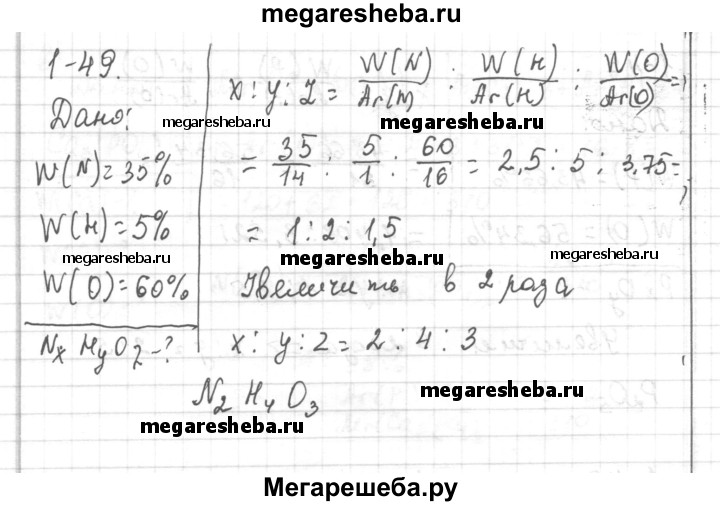 megaresheba.ru
1-49.
Дано:
megaresheba.ru
W(N)=35%
W(H)=5%
megaresheba.ru
W(O)=60%
NxHyOz-?
x:y:z = W(N)/Ar(N) : W(H)/Ar(H) : W(O)/Ar(O) =
megaresheba.ru
megaresheba.ru
= 35/14 : 5/1 : 60/16 = 2,5 : 5 : 3,75 =
= 1 : 2 : 1,5
megaresheba.ru
megaresheba.ru
Увеличить в 2 раза
x : y : z = 2 : 4 : 3
N2H4O3
megaresheba.ru
megaresheba.ru
Мегарешеба.ру